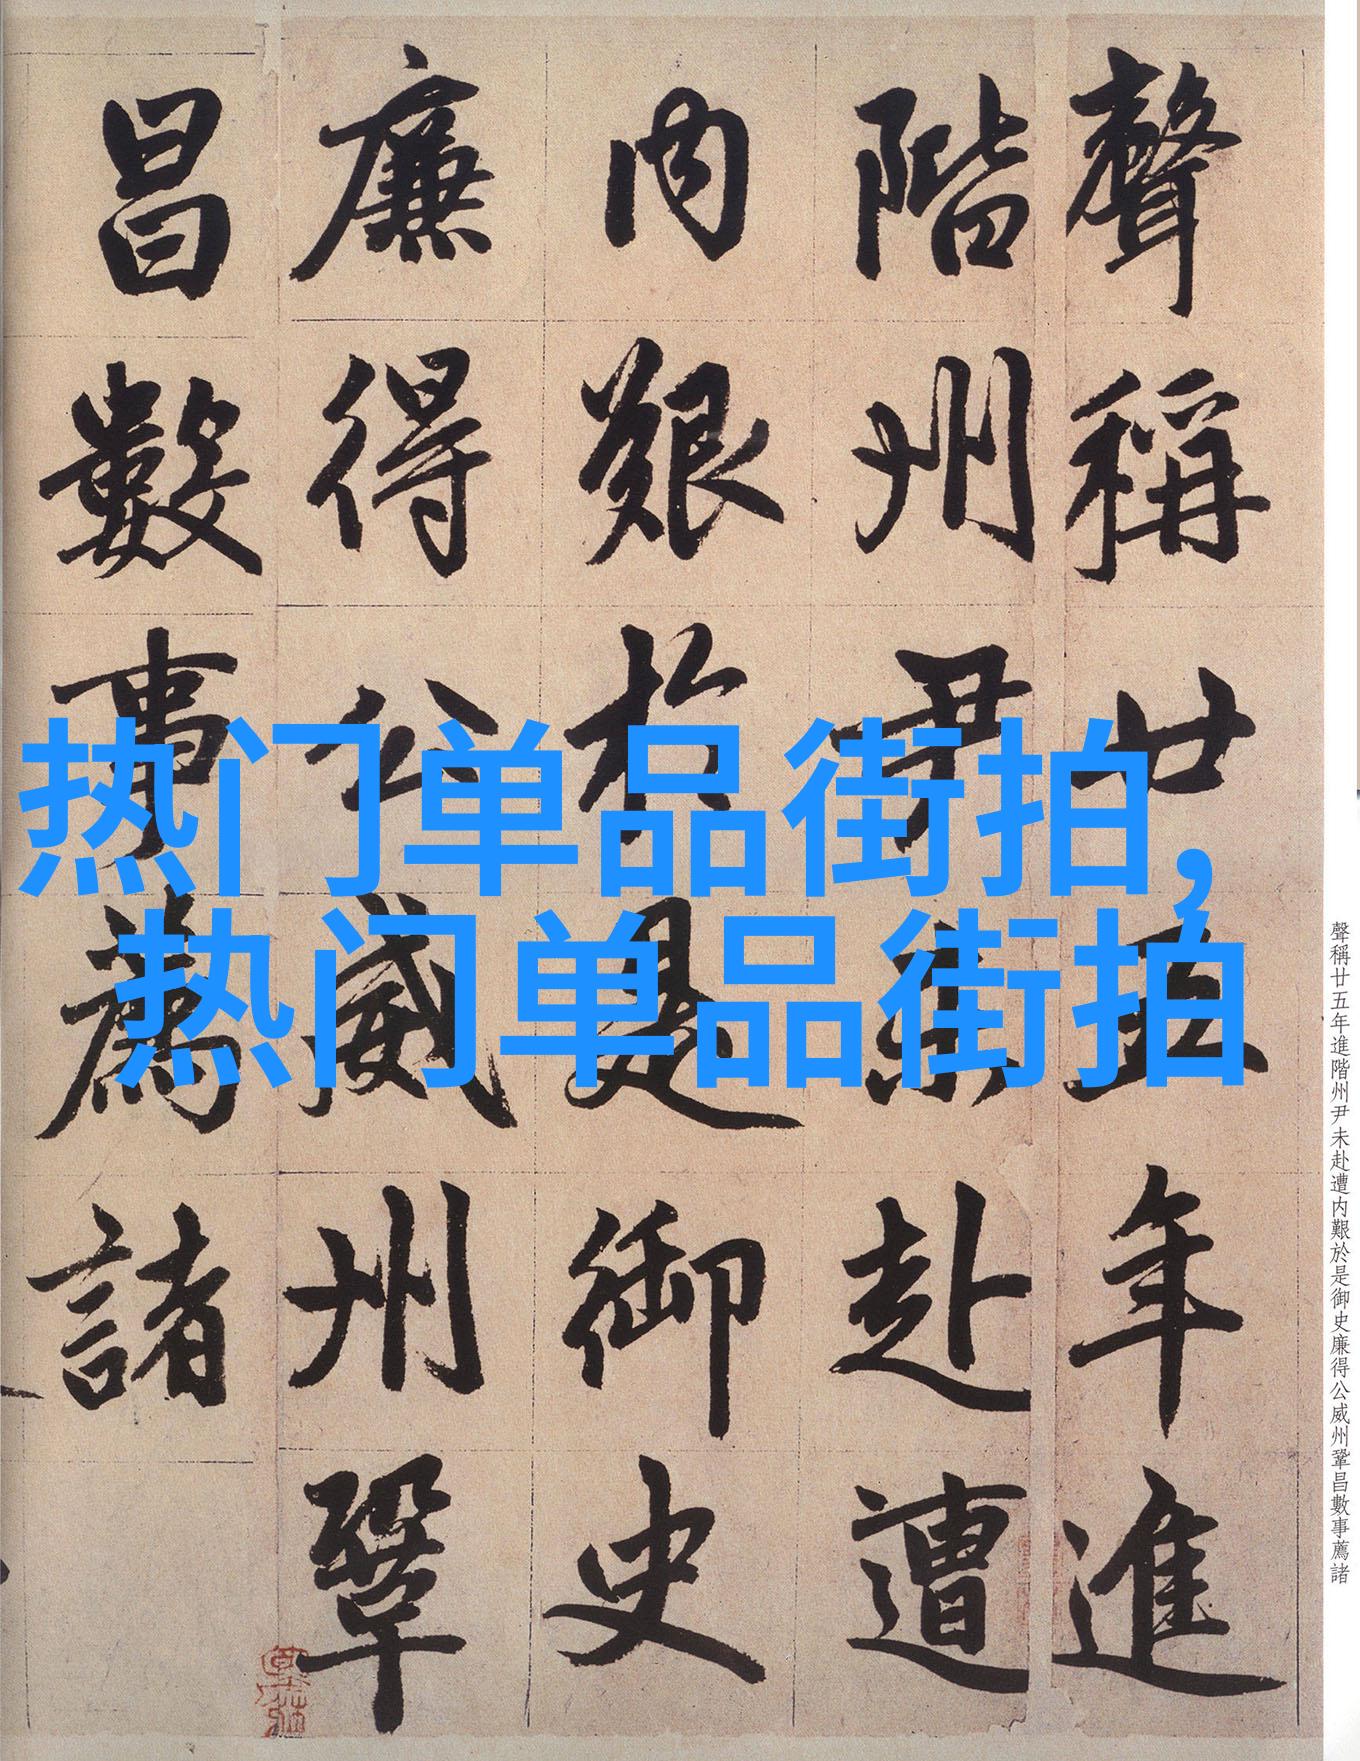 聲稱廿五年進
階州尹未赴遭
内艱於是御史
廉得公威州鞏
昌數事薦諸
热门单品街拍,
热门单品街拍
聲稱廿五年進階州尹未赴遭内艱於是御史廉得公威州鞏昌數事薦諸